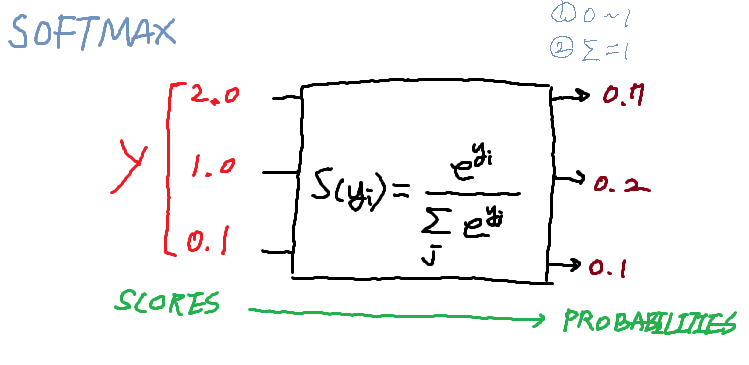 SOFTMAX
① 0 ~ 1
② Σ = 1
y
2.0
1.0
0.1
S(yᵢ) = e^{yᵢ} / Σ_j e^{yⱼ}
0.7
0.2
0.1
SCORES
PROBABILITIES